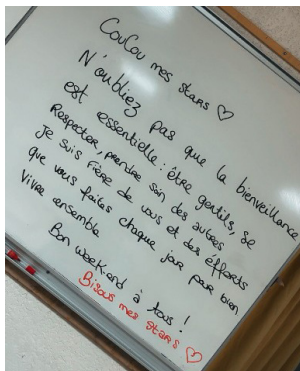 Coucou mes stars ♡
N'oubliez pas que la bienveillance
est essentielle : être gentils, se
Respecter, prendre soin des autres
Je suis fière de vous et des éfforts
que vous faites chaque jour pour bien
vivre ensemble
Bon week-end à tous !
Bisous mes stars ♡